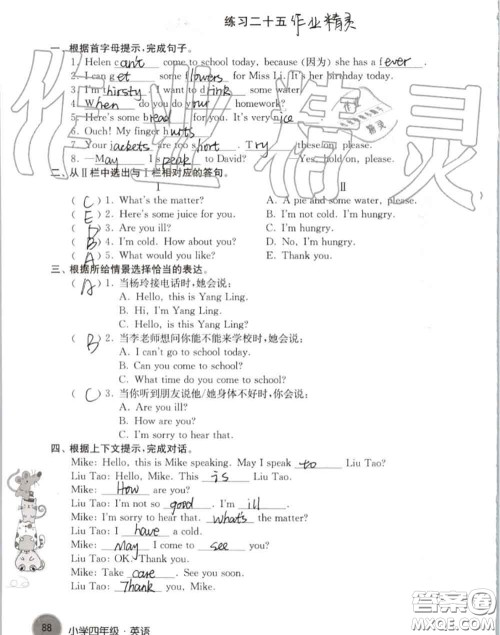 练习二十五 作业精灵
一、根据首字母提示,完成句子。
1. Helen can't come to school today, because (因为) she has a fever.
2. I can get some flowers for Miss Li. It's her birthday today.
3. I'm thirsty. I want to drink some water.
4. When do you do your homework?
5. Here's some bread for you. It's very nice
6. Ouch! My finger hurts
7. Your jackets are too short. Try these, please.
8. —May I speak to David? —Yes, hold on, please.
二、从Ⅱ栏中选出与Ⅰ栏相对应的答句。
Ⅰ Ⅱ
( C ) 1. What's the matter? A. A pie and some water.
( E ) 2. Here's some juice for you. B. I'm not cold. I'm hungry.
( D ) 3. Are you ill? C. I'm hungry.
( B ) 4. I'm cold. How about you? D. No, I'm hungry.
( A ) 5. What would you like? E. Thank you.
三、根据所给情景选择恰当的表达。
( A ) 1. 当杨玲接电话时,她会说:
A. Hello, this is Yang Ling.
B. Hi, I'm Yang Ling.
C. Hello, is this Yang Ling?
( B ) 2. 当李老师想问你能不能来学校时,她会说:
A. I can't go to school today.
B. Can you come to school?
C. What time do you come to school?
( C ) 3. 当你听到朋友说他/她身体不好时,你会说:
A. Are you ill?
B. I'm ill.
C. I'm sorry to hear that.
四、根据上下文提示,完成对话。
Mike: Hello, this is Mike speaking. May I speak to Liu Tao?
Liu Tao: Hello, Mike. This is Liu Tao.
Mike: How are you?
Liu Tao: I'm not so good. I'm ill.
Mike: I'm sorry to hear that. What's the matter?
Liu Tao: I have a cold.
Mike: May I come to see you?
Liu Tao: Yes. Thank you.
Mike: Take care. See you soon.
Liu Tao: Thank you, Mike.
88 小学四年级·英语
作业精灵
精灵
答案圈
MXQE.COM